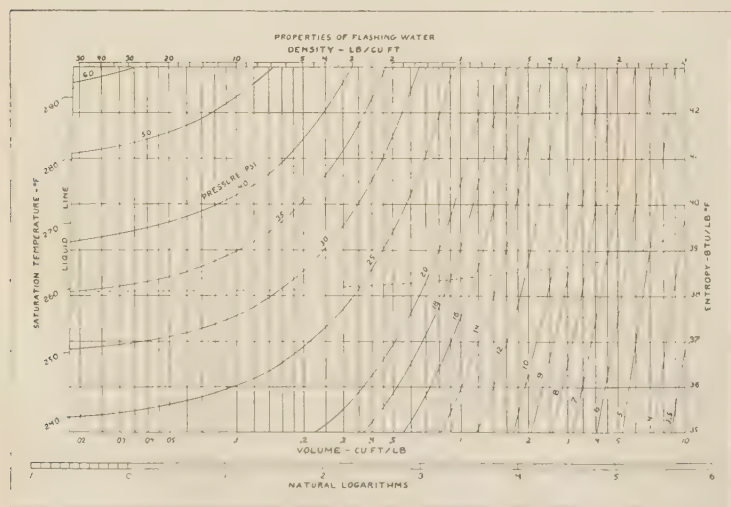 PROPERTIES OF FLASHING WATER
DENSITY - LB/CU FT
50 40 30 20 10 5 4 3 2 1 5 4 3 2 1
60
50
PRESSURE PSI
40
35
30
25
20
18
16
14
12
10
9
8
7
6
5
4
3.5
SATURATION TEMPERATURE - °F
LIQUID LINE
290
280
270
260
250
240
ENTROPY - BTU/LB °F
.42
.41
.40
.39
.38
.37
.36
.35
.02 .03 .04 .05 .1 .2 .3 .4 .5 1 2 3 4 5 10
VOLUME - CU FT/LB
1 0 1 2 3 4 5 6
NATURAL LOGARITHMS